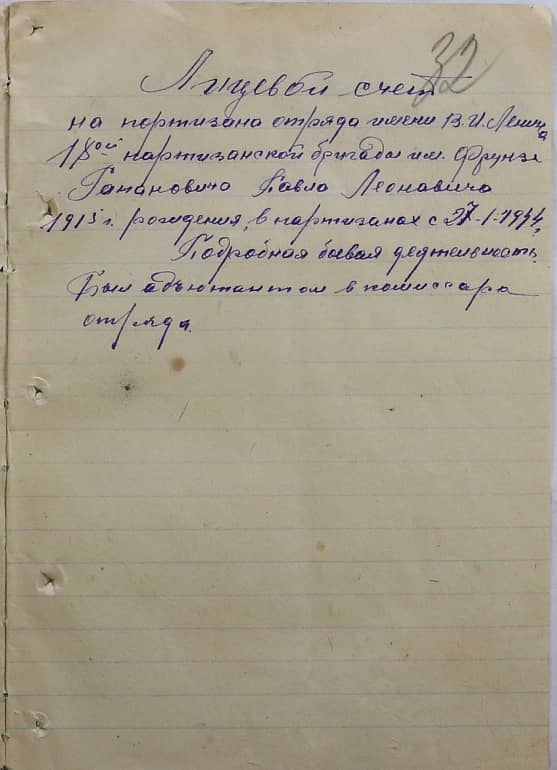 32
Лицевой счет
на портизана отряда имени В.И. Ленина
18ой партизанской бригады им. Фрунзе
Гапановича Павла Леонавича
1915 г. рождения, в партизанах с 27-1-1944.
Подробная бавая деятельность.
Был адъютантом в комиссара
отряда.